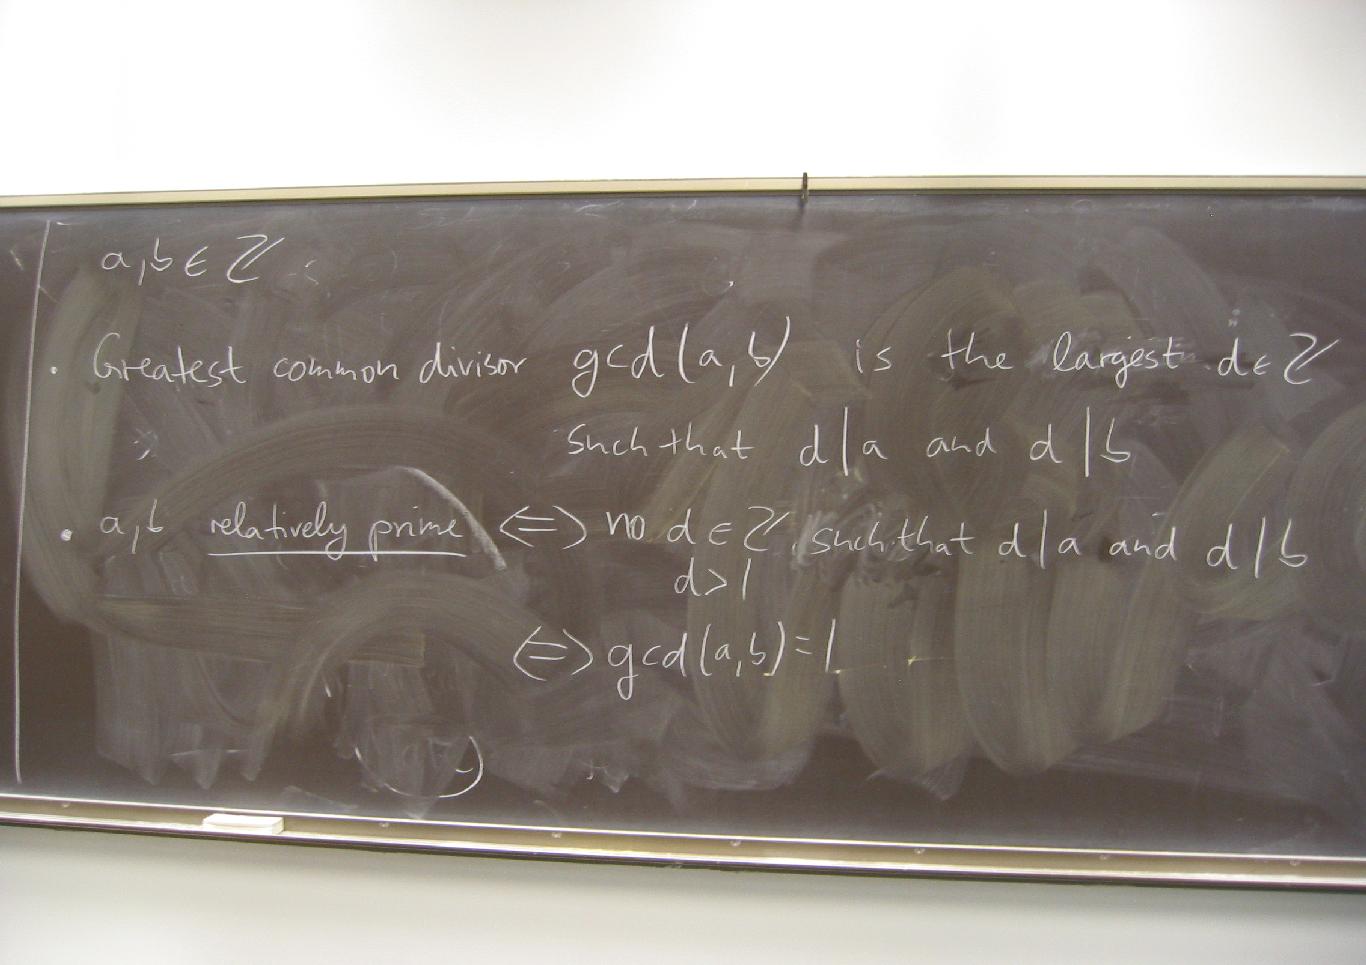 a,b ∈ ℤ
• Greatest common divisor gcd(a,b) is the largest d ∈ ℤ
such that d|a and d|b
• a,b relatively prime ⇔ no d ∈ ℤ, such that d|a and d|b
d>1
⇔ gcd(a,b)=1